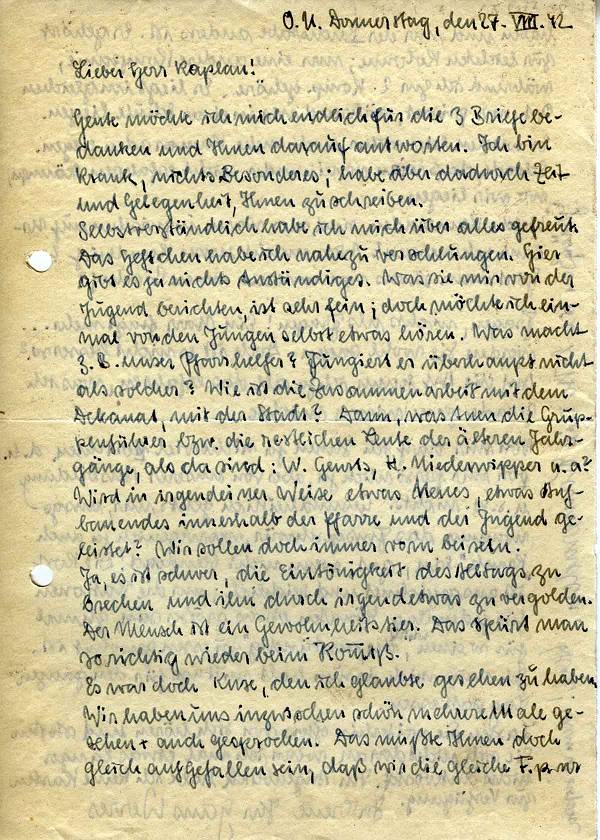 O.U. Donnerstag, den 27. VIII. 42
Lieber Herr Kaplan!
Heute möchte ich mich endlich für die 3 Briefe be-
danken und Ihnen darauf antworten. Ich bin
krank, nichts Besonderes; habe aber dadurch Zeit
und Gelegenheit, Ihnen zu schreiben.
Selbstverständlich habe ich mich über alles gefreut.
Das Heftchen habe ich nahezu verschlungen. Hier
gibt es ja nichts Anständiges. Was sie mir von der
Jugend berichten, ist sehr fein; doch möchte ich ein-
mal von den Jungen selbst etwas hören. Was macht
z.B. unser Pfarrhelfer? Fungiert er überhaupt nicht
als solcher? Wie ist die Zusammenarbeit mit dem
Dekanat, mit der Stadt? Dann, was tuen die Grup-
penführer bzw. die restlichen Leute der älteren Jahr-
gänge, als da sind: W. Geurts, H. Niederwipper u.a?
Wird in irgendeiner Weise etwas Neues, etwas Auf-
bauendes innerhalb der Pfarre und der Jugend ge-
leistet? Wir sollen doch immer vorn bei sein.
Ja, es ist schwer, die Eintönigkeit des Alltags zu
brechen und ihn durch irgendetwas zu vergolden.
Der Mensch ist ein Gewohnheitstier. Das spürt man
so richtig wieder beim Komiß.
Es war doch Kuse, den ich glaubte gesehen zu haben.
Wir haben uns inzwischen schön mehrere Male ge-
sehen + auch gesprochen. Das müßte Ihnen doch
gleich aufgefallen sein, daß wir die gleiche F.p.nr